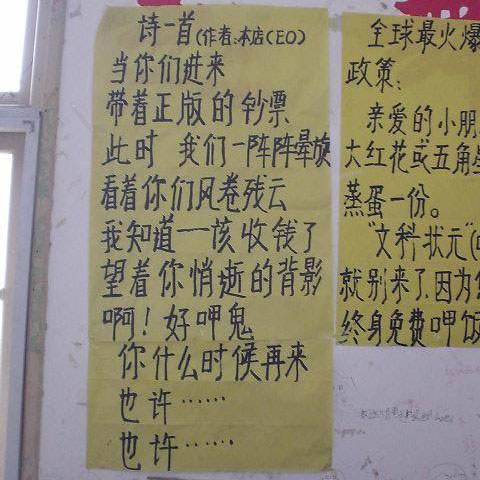 诗一首(作者:本店CEO)
当你们进来
带着正版的钞票
此时 我们一阵阵晕旋
看着你们风卷残云
我知道一该收钱了
望着你悄逝的背影
啊!好呷鬼
你什么时候再来
也许……
也许……
全球最火爆
政策:
亲爱的小朋
大红花或五角星
蒸蛋一份。
"文科状元"(
就别来了.因为
终身免费呷饭